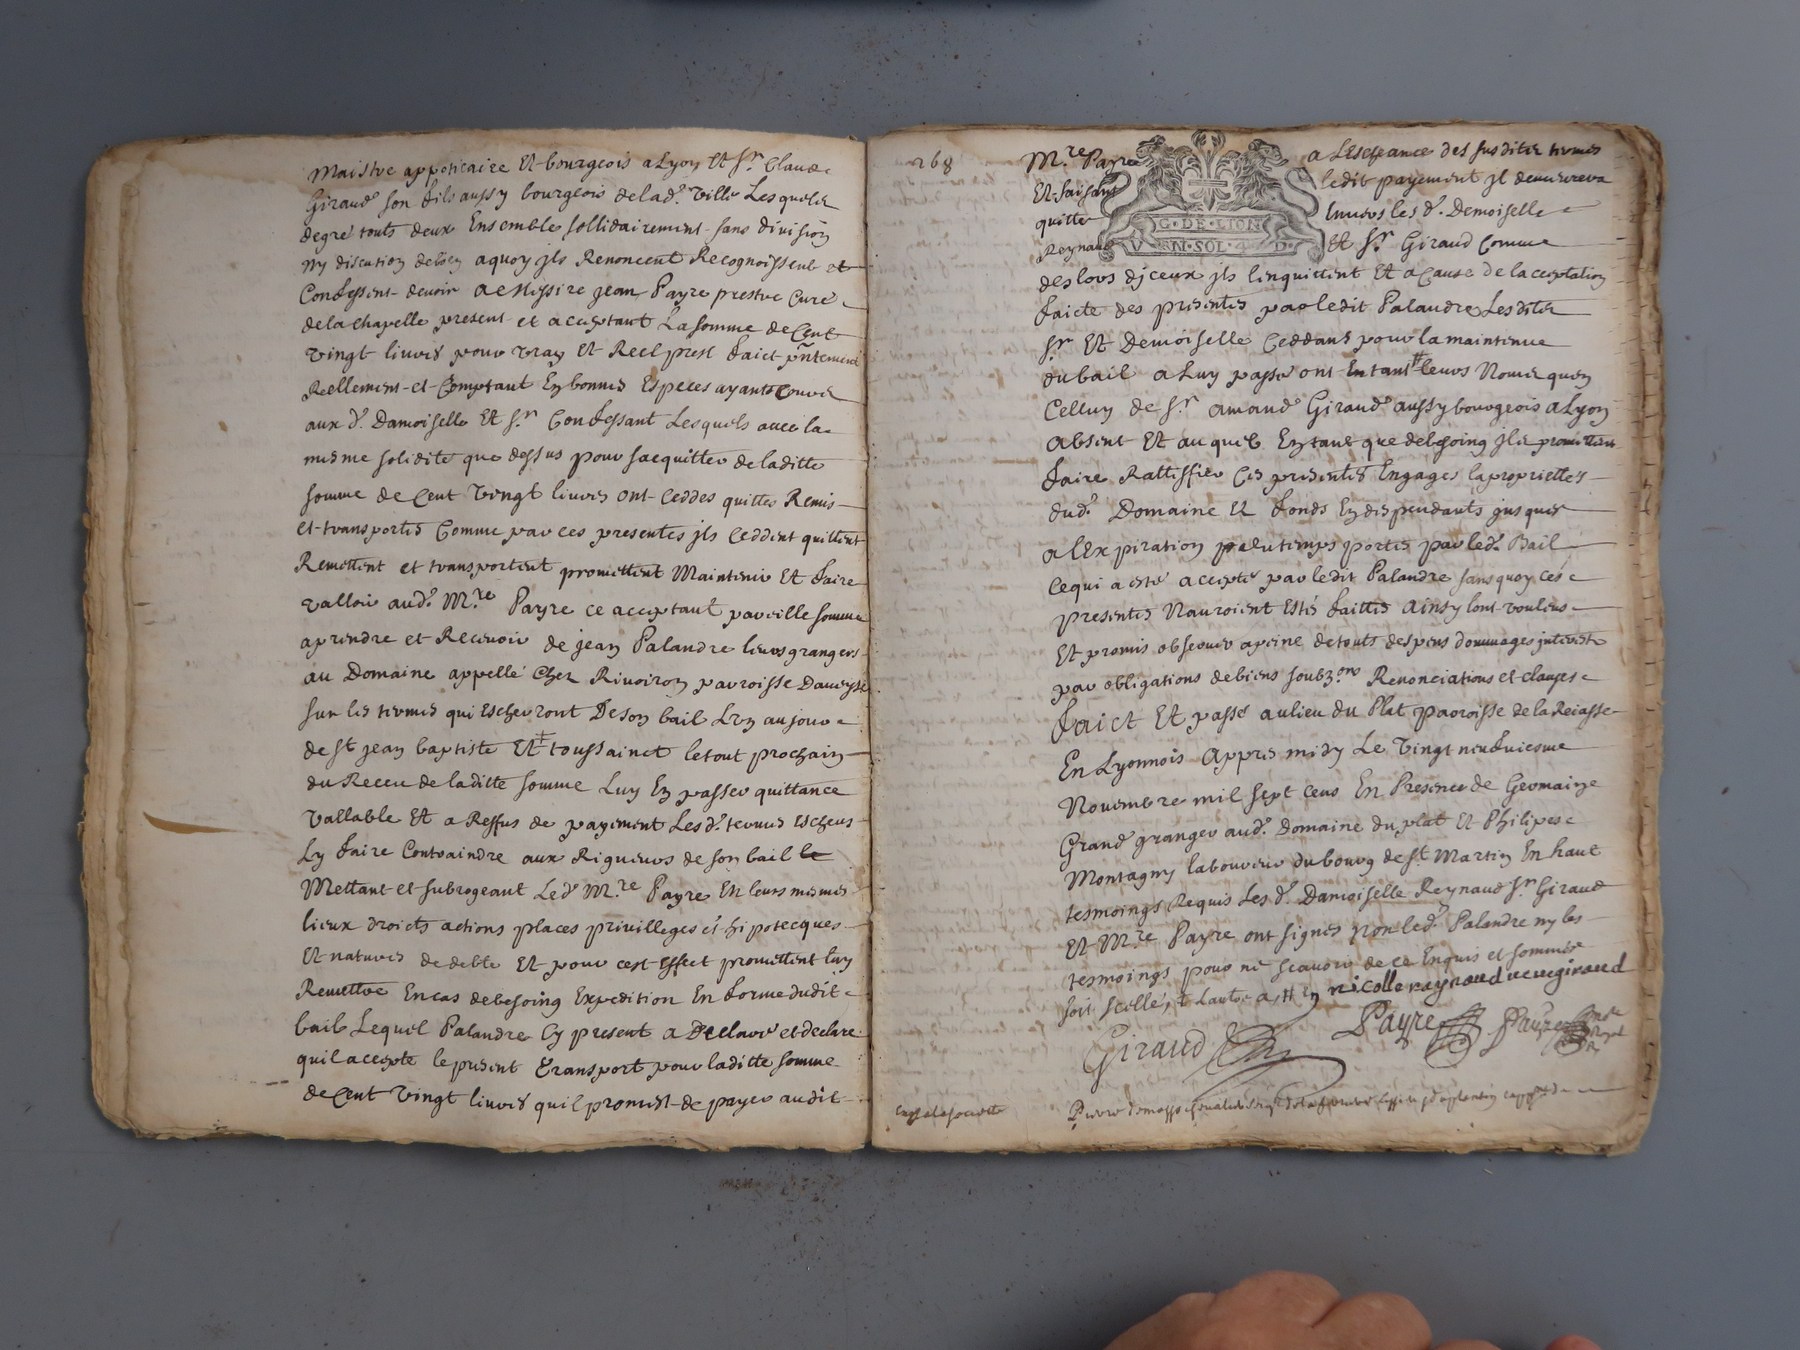 Maistre appoticaire Et bourgeois a Lyon Et Sr Claude
Giraud son fils aussy bourgeois de lad. ville Lesquels
degré touts deux Ensemble sollidairement sans division
ny discution de bien aquoy jls Renoncent Recognoissent et
Confessent devoir a Messire jean Payre prestre Curé
de la chapelle present et acceptant La somme de Cent
vingt livres pour vray Et Reel prest faict pntement
Reellement et Comptant En bonnes Especes ayants Cours
aux d. Damoiselle Et Sr Confessant Lesquels avec la
mesme solidité que dessus pour sacquitter de laditte
somme de Cent vingt livres ont Ceddés quittes Remis
et transportés Comme par ces presentes jls Ceddent quittent
Remettent et transportent promettent Maintenir Et faire
valloir aud. Mre Payre ce acceptant pareille somme
a prendre et Recevoir de jean Palandre leurs granger
au Domaine appellé Chez Rivoiron parroisse Daveyse
sur les termes qui Escherront De son bail Lun au jour
de St jean baptiste Et toussainct le tout prochain
du Receu de laditte somme Luy En passer quittance
vallable Et a Reffus de payement Les d. termes Escheus
Ly faire Contraindre aux Rigueurs de son bail le
Mettant et subrogeant Led Mre Payre En leurs mesmes
lieux droicts actions places privilleges et hipotecques
Et natures de debte Et pour cest Effect promettent luy
Remettre En cas de besoing Expedition En forme dudit
bail Lequel Palandre Cy present a Declaré et declare
quil accepte le present transport pour laditte somme
de Cent vingt livres quil promest de payer audit
268
Mre Payre a Lescheance des susdites termes
Et faisant ledit payement jl demeurera
quitte Envers les d. Demoiselle
Reynaud Et Sr Giraud Comme
G·DE·LION
V N·SOL·4 D·
des lors djceux jls lenquittent Et a Cause de la cceptation
faicte des presentes par ledit Palandre Lesdites
Sr Et Demoiselle Ceddans pour la maintenue
du bail a Luy passé ont En tant leurs Noms quen
Celluy de Sr amand Giraud aussy bourgeois a Lyon
absent Et auquel En tant que de besoing jls promettent
faire Rattiffier Ces presentes Engagés la propriettes
dud. Domaine Et fonds En despendants jusques
a lExpiration du temps portés par led. Bail
Ce qui a esté accepté par ledit Palandre sans quoy ces
presentes Nauroient Estés faittes ainsy lont voulus
Et promis observer a peine de touts despens dommages interests
par obligations de biens soubzons Renonciations et clauses
faict Et passé au lieu du Plat parroisse de la Reiasse
En Lyonnois Appres midy Le vingt neufviesme
Novembre mil sept cens En Presence de Germain
Grand granger aud. Domaine du plat Et Philipes
Montagny laboureur du bourg de St Martin En haut
tesmoings Requis Les d. Damoiselle Reynaud Sr Giraud
Et Mre Payre ont signés non led. Palandre ny les
tesmoings pour ne scavoir de ce Enquis et sommés
soit scellé nicolle raynaud veuve giraud
Giraud Payre Payre